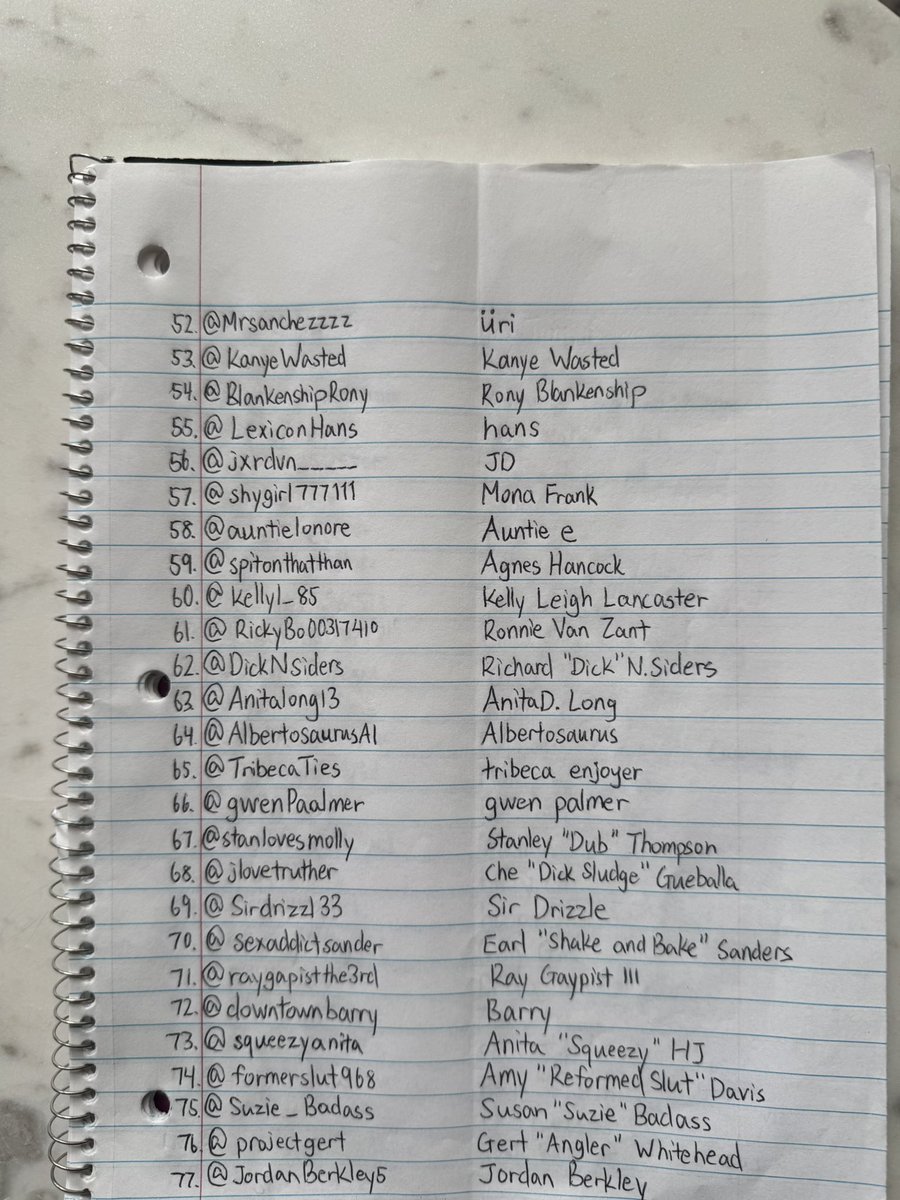 52. @Mrsanchezzzz üri
53. @KanyeWasted Kanye Wasted
54. @BlankenshipRony Rony Blankenship
55. @LexiconHans hans
56. @jxrdvn_____ JD
57. @shygirl777111 Mona Frank
58. @auntielonore Auntie e
59. @spitonthatthan Agnes Hancock
60. @kellyl_85 Kelly Leigh Lancaster
61. @RickyBo00317410 Ronnie Van Zant
62. @DickNSiders Richard "Dick" N. Siders
63. @Anitalong13 Anita D. Long
64. @AlbertosaurusAl Albertosaurus
65. @TribecaTies tribeca enjoyer
66. @gwenPaalmer gwen palmer
67. @stanlovesmolly Stanley "Dub" Thompson
68. @jlovetruther Che "Dick Sludge" Gueballa
69. @Sirdrizzl33 Sir Drizzle
70. @sexaddictsander Earl "Shake and Bake" Sanders
71. @raygapistthe3rd Ray Gaypist III
72. @downtownbarry Barry
73. @squeezyanita Anita "Squeezy" HJ
74. @formerslut968 Amy "Reformed Slut" Davis
75. @Suzie_Badass Susan "Suzie" Badass
76. @projectgert Gert "Angler" Whitehead
77. @JordanBerkley5 Jordan Berkley